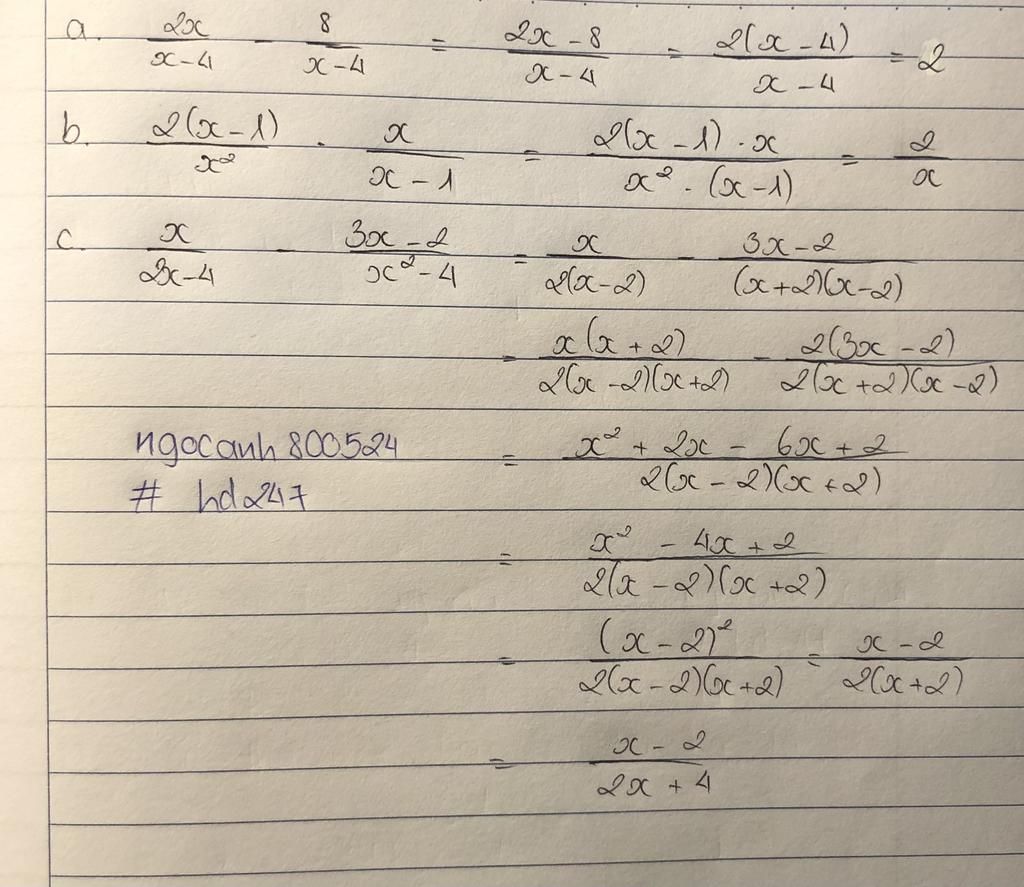 a. 2x/(x-4) - 8/(x-4) = (2x-8)/(x-4) = 2(x-4)/(x-4) = 2
b. 2(x-1)/x² · x/(x-1) = 2(x-1)·x/(x²·(x-1)) = 2/x
c. x/(2x-4) - (3x-2)/(x²-4) = x/(2(x-2)) - (3x-2)/((x+2)(x-2))
= x(x+2)/(2(x-2)(x+2)) - 2(3x-2)/(2(x+2)(x-2))
ngocanh800524
= (x²+2x-6x+2)/(2(x-2)(x+2))
# hd247
= (x²-4x+2)/(2(x-2)(x+2))
= (x-2)²/(2(x-2)(x+2)) = (x-2)/(2(x+2))
= (x-2)/(2x+4)